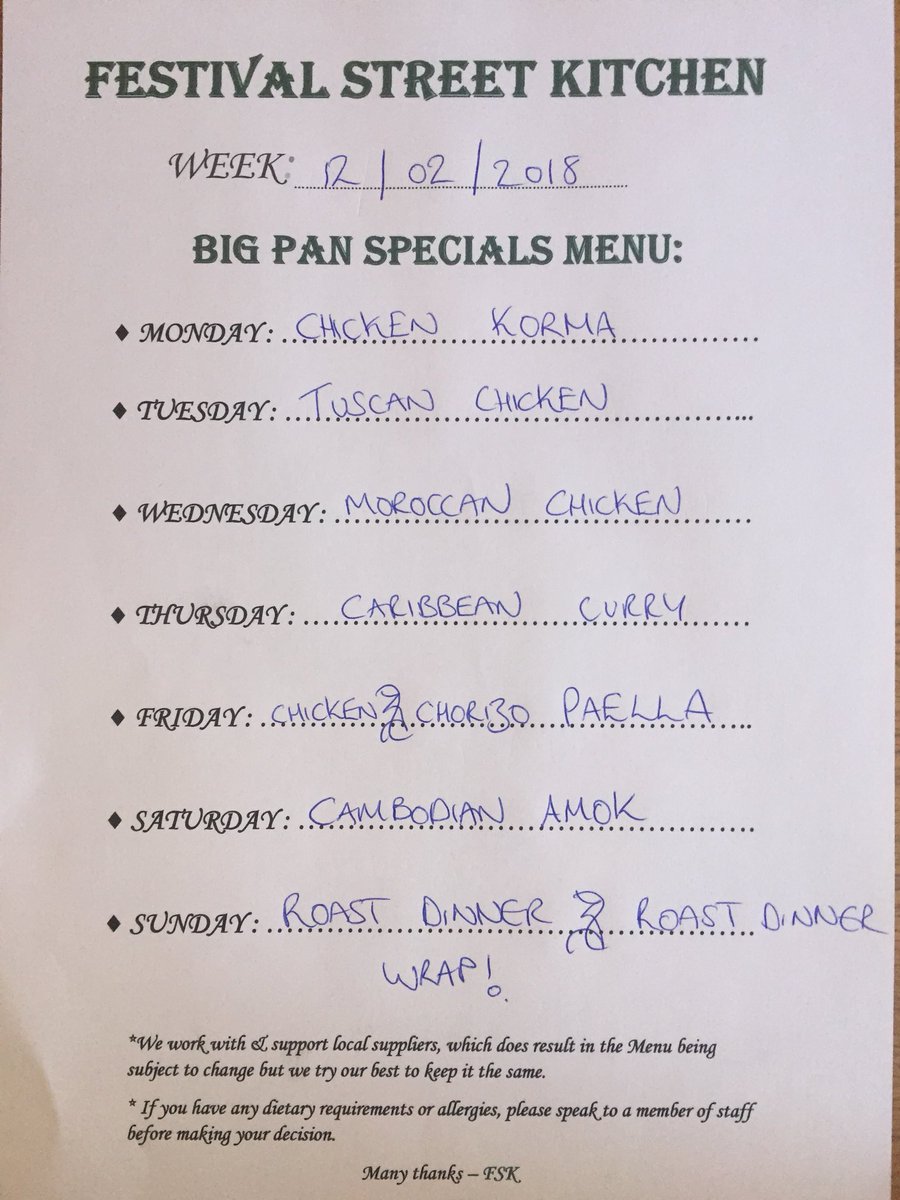 FESTIVAL STREET KITCHEN
WEEK: 12/02/2018
BIG PAN SPECIALS MENU:
♦ MONDAY: CHICKEN KORMA
♦ TUESDAY: TUSCAN CHICKEN
♦ WEDNESDAY: MOROCCAN CHICKEN
♦ THURSDAY: CARIBBEAN CURRY
♦ FRIDAY: CHICKEN & CHORIZO PAELLA
♦ SATURDAY: CAMBODIAN AMOK
♦ SUNDAY: ROAST DINNER & ROAST DINNER
WRAP!
*We work with & support local suppliers, which does result in the Menu being
subject to change but we try our best to keep it the same.
* If you have any dietary requirements or allergies, please speak to a member of staff
before making your decision.
Many thanks – FSK